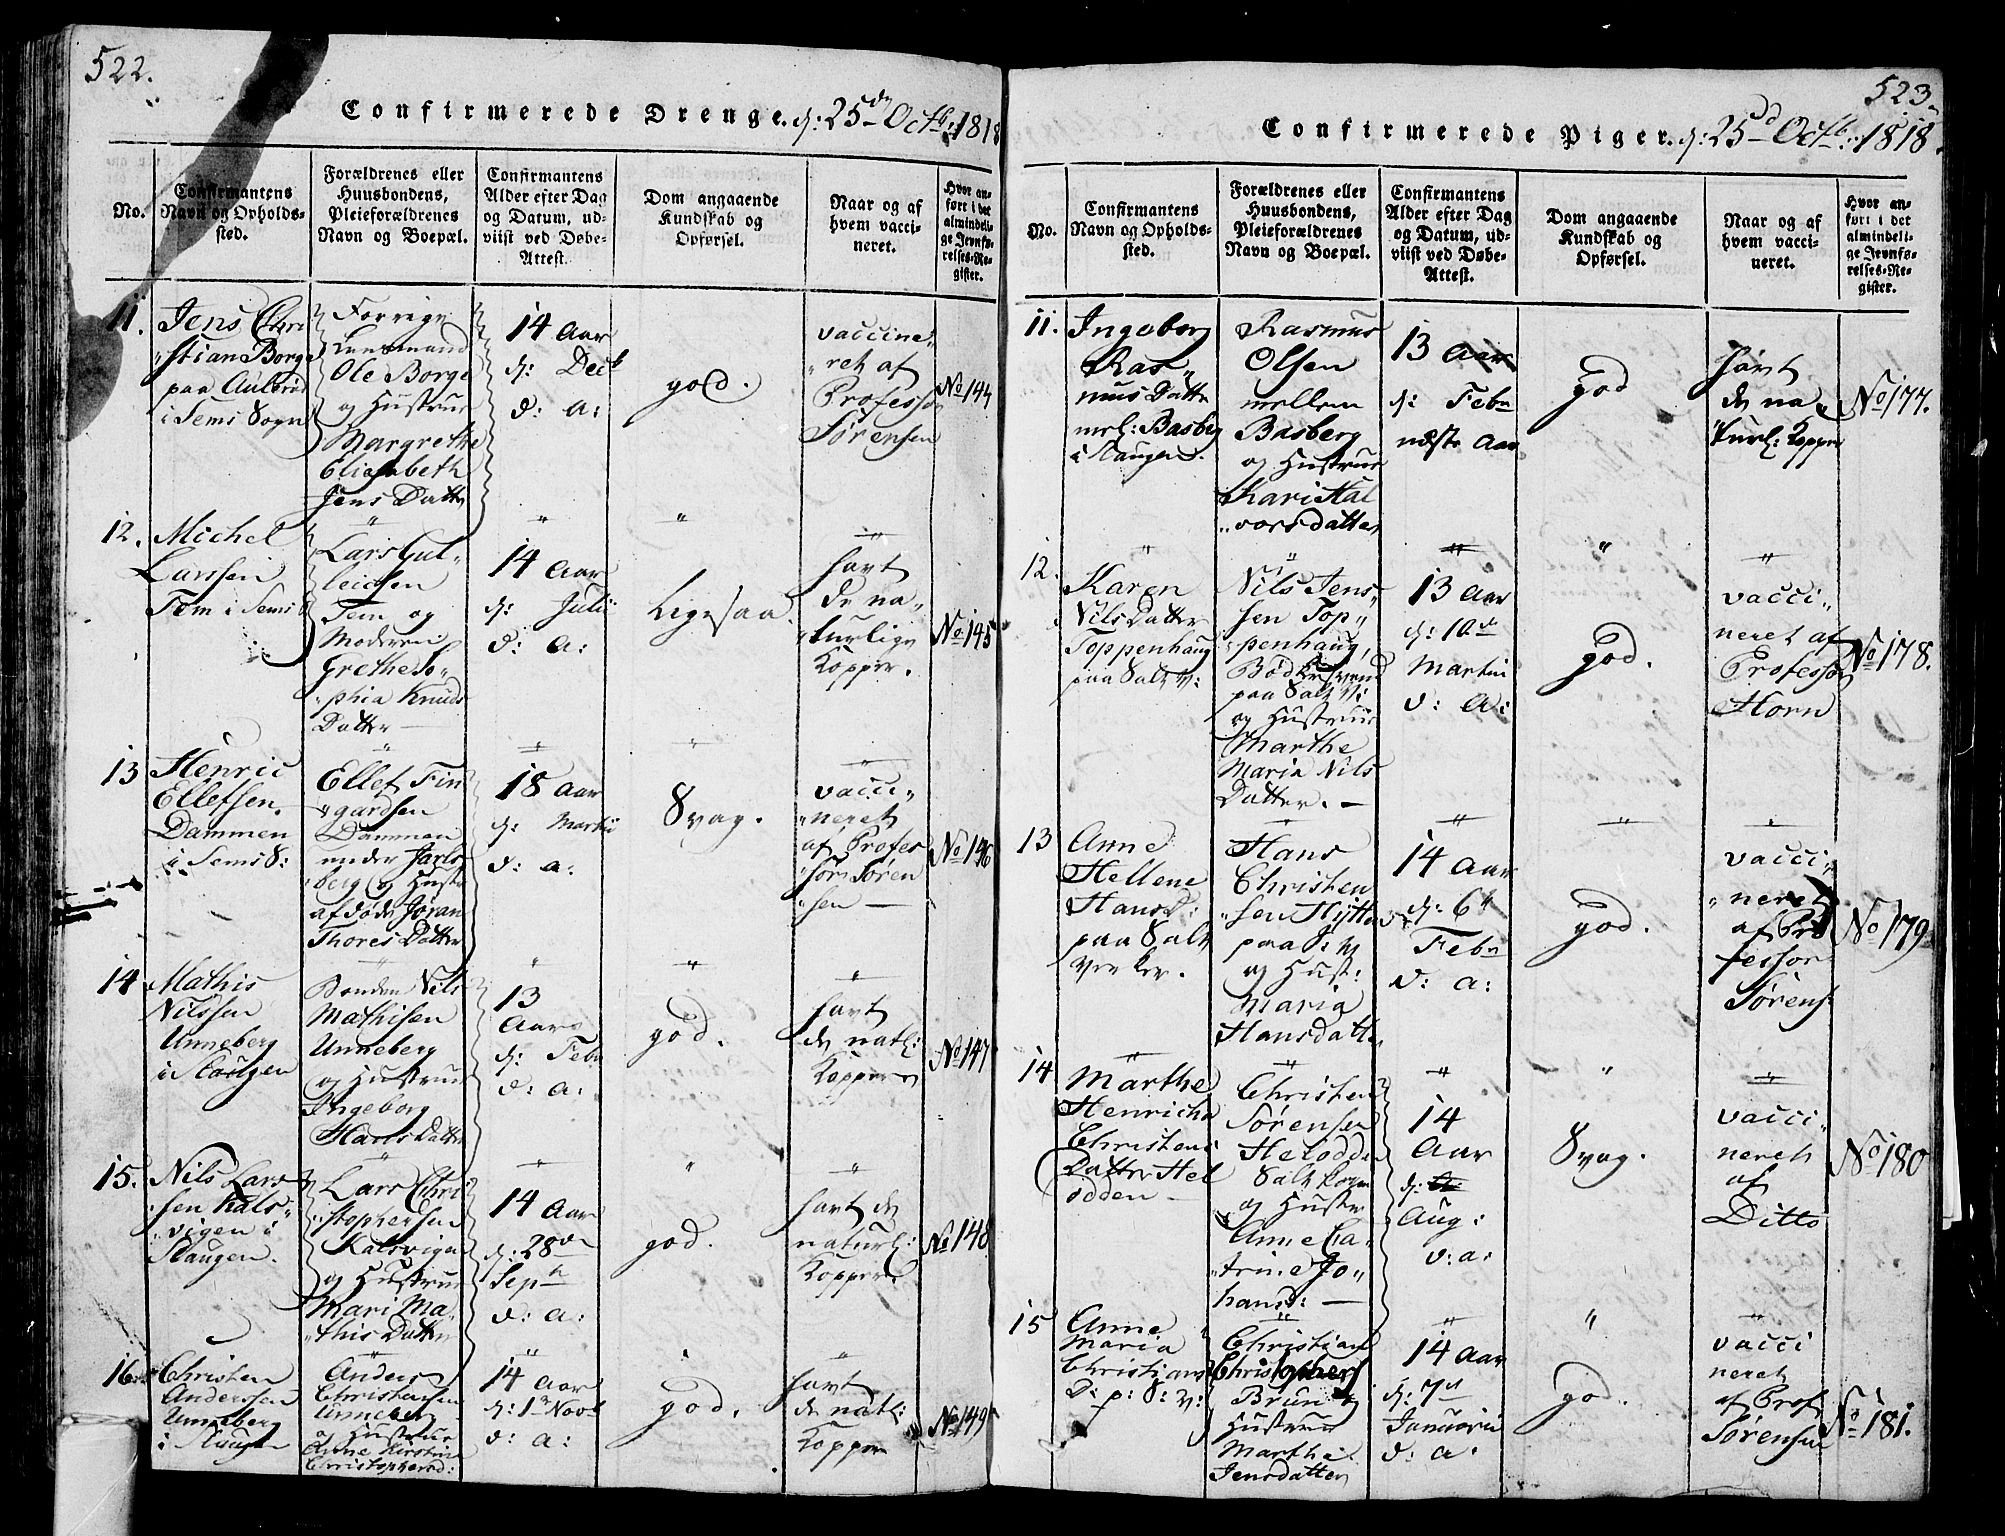 522.
Confirmerede Drenge. d: 25de Octb: 1818
No.
Confirmantens
Navn og Opholds-
sted.
Forældrenes eller
Huusbondens,
Pleieforældrenes
Navn og Boepæl.
Confirmantens
Alder efter Dag
og Datum, ud-
viist ved Døbe-
Attest.
Dom angaaende
Kundskab og
Opførsel.
Naar og af
hvem vacci-
neret.
Hvor an-
ført i det
almindeli-
ge Jevnfø-
relses-Re-
gister.
11.
Jens Chri
"stian Borge
paa Aulerød
i Sems Sogn
Forrige
Lensmand
Ole Borge
og Hustrue
Margrethe
Elisabeth
Jens Datter
14 Aar
d: Decb
d: A:
god.
vaccine"
"ret af
Professor
Sørensen
No 144
12.
Michel
Larssen
Tem i Sems S
Lars Gul"
leichsen
Tem og
Moderen
Grethe So"
"phia Knuds
Datter
14 Aar
d: Julii
d: A:
Ligesaa.
havt
de na"
"turlige
Kopper.
No 145
13
Henric
Ellefsen
Dammen
i Sems S:
Ellef Fin
"gardsen
Dammen
under Jarls
berg og Hustr
afdøde Jøran
Thores Datter
18 Aar
d: Martii
d: a:
Svag.
vacci"
"neret
af Profes
"sor Søren
"sen
No 146
14
Mathis
Nilssen
Unneberg
i Slaugen
Bonden Nils
Mathisen
Unneberg
og Hustrue
Ingeborg
Hans Datter
13
Aar
d: Febr
d: A:
god.
havt
de natl:
Kopper
No 147
15.
Nils Lars
"sen Kals"
"vigen i
Slaugen.
Lars Chri
"stophersen
Kalsvigen
og Hustrue
Mari Ma"
"this Datter
14 Aar
d: 28de
Sept
d: A:
god.
havt de
naturl:
Kopper.
No 148
16
Christen
Anderssen
Unneberg
i Slaugen
Anders
Christensen
Unneberg
og Hustrue
Anne Kirstine
Christophersd:
14 Aar
d: 1 Novb
d: A:
god.
havt
de natl:
Kopper
No 149
523.
Confirmerede Piger. d: 25d Octb: 1818.
No.
Confirmantens
Navn og Opholds-
sted.
Forældrenes eller
Huusbondens,
Pleieforældrenes
Navn og Boepæl.
Confirmantens
Alder efter Dag
og Datum, ud-
viist ved Døbe-
Attest.
Dom angaaende
Kundskab og
Opførsel.
Naar og af
hvem vacci-
neret.
Hvor an-
ført i det
almindeli-
ge Jevnfø-
relses-Re-
gister.
11.
Ingeborg
Ras"
mus Datter
mel: Basberg
i Slaugen.
Rasmus
Olsen
mellem
Basberg
og Hustrue
Kari Hal
"vorsdatter
13 Aar
d: Febr
næste Aar
god
havt
de na
"turl: Kopper
No 177.
12.
Karen
Nils Datter
Toppenhaug
paa Salt V:
Nils Jens"
sen Top"
"penhaug,
Bødkersvend
paa Salt V:
og Hustrue
Marthe
Maria Nils
Datter.
13 Aar
d: 10de
Martii
d: A:
god.
vacci"
neret af
Professor
Horn
No 178.
13
Anne
Hellene
Hansd:
paa Salt
Verket.
Hans
Christen
"sen Hytten
paa S: V
og Hust:
Maria
Hansdatter
14 Aar
d: 6te
Febr
d: A:
god.
vacci"
"neret
af Pro
fessor
Sørens:
No 179
14
Marthe
Henriche
Christens
Datter Hel
odden
Christen
Sørensen
Helodden
Salt
og Hustr
Anne Ca"
"trine Jo"
hansd:
14
Aar
d:
Aug:
d: a:
Svag.
vacci"
neret
af
Ditto
No 180
15
Anne
Maria
Christians
D: p: S: V:
Christian
Christophers
Brun og
Hustrue
Marthe
Jensdatter
14 Aar
d: 7de
Januarii
d: A
god.
vacci
neret
af Prof
Sørensen
No 181.